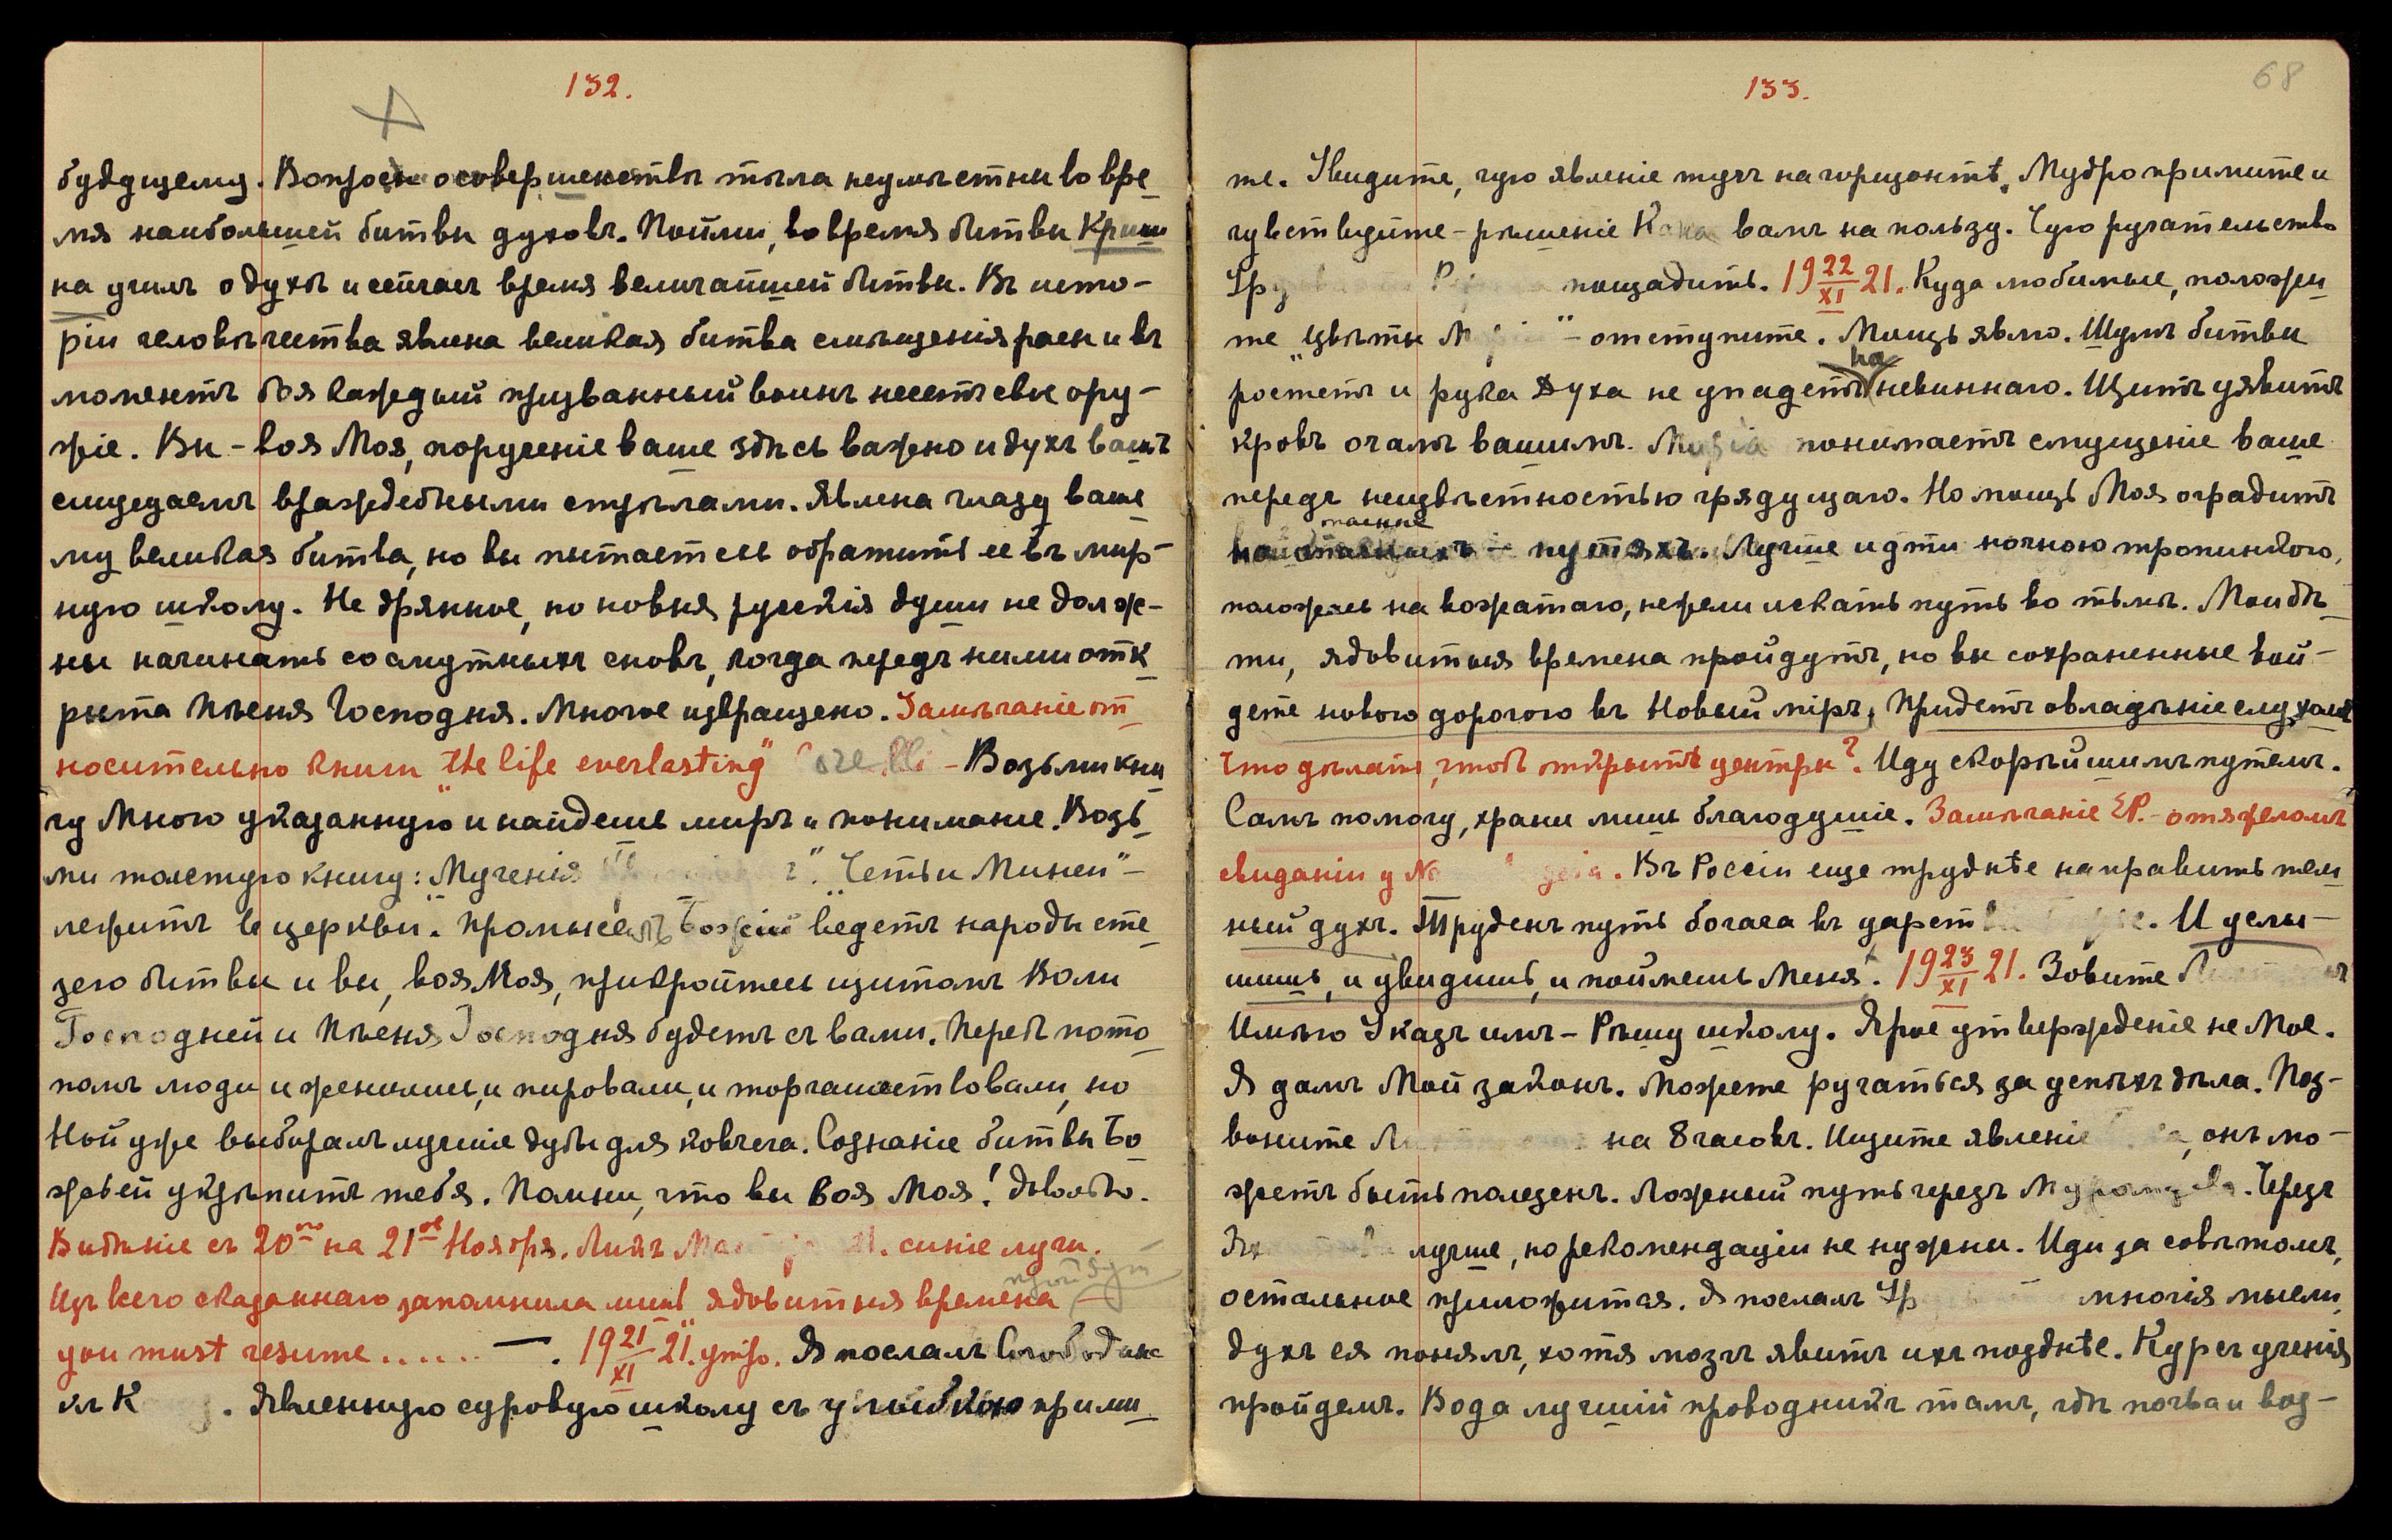 132.
будущему. Вопросы о совершенствѣ тѣла неумѣстны во вре-
мя наибольшей битвы духовъ. Пойми, во время битвы Криш-
на училъ о духѣ и сейчасъ время величайшей битвы. Въ исто-
ріи человѣчества явлена великая битва смѣщенія расы и въ
моментъ боя каждый призванный воинъ несетъ свое ору-
жіе. Вы - воя Моя, порученіе ваше здѣсь важно и духъ вашъ
смущаемъ враждебными стрѣлами. Явлена глазу ваше-
му великая битва, но вы пытаетесь обратить ее въ мир-
ную школу. Не дрянное, но новыя русскія души не долж-
ны начинать со смутныхъ сновъ, когда предъ ними отк-
рыта Пѣсня Господня. Многое извращено. Замѣчаніе от-
носительно книги "the life everlasting" - Возьми кни-
гу Мною указанную и найдешь миръ и пониманіе. Возь-
ми толстую книгу: Мученія "Четьи Минеи" -
лежитъ въ церкви. Промыселъ Божій ведетъ народы сте-
зею битвы и вы, воя Моя, прикройтесь щитомъ Воли
Господней и Пѣсня Господня будетъ съ вами. Передъ пото-
помъ люди и женились, и пировали, и торгашествовали, но
Ной уже выбиралъ лучшіе дубы для ковчега. Сознаніе битвы Бо-
жьей укрѣпитъ тебя. Помни, что вы воя Моя! Довольно.
Видѣніе съ 20го на 21ое Ноября. Ликъ синіе лучи.
Изъ всего сказаннаго запомнила лишь ядовитыя времена — пройдут
you must resume ...... — . 19 21/XI 21. утро. Я послалъ Свободные
къ К . Явленную суровую школу съ улыбкою прими-
133.
68
те. Увидите, чую явленіе тучъ на горизонтѣ. Мудро примите и
чувствуйте - рѣшеніе вамъ на пользу. Чую ручательство
пощадить. 19 22/XI 21. Куда любимые, положи-
те "цвѣты М " - отступите. Мощь явлю. Шумъ битвы
ростетъ и рука Духа не упадетъ на невиннаго. Щитъ уявитъ
кровъ очамъ вашимъ. понимаетъ смущеніе ваше
передъ неизвѣстностью грядущаго. Но мощь Моя оградитъ
путяхъ. Лучше идти ночною тропинкою,
положась на вожатаго, нежели искать путь во тьмѣ. Мои дѣ-
ти, ядовитыя времена пройдутъ, но вы сохраненные вой-
дете новою дорогою въ Новый міръ, Придетъ овладѣніе слухомъ
Что дѣлать, чтобъ открыть центры? Иду скорѣйшимъ путемъ.
Самъ помогу, храни лишь благодушіе. Замѣчаніе ЕР. - о тяжеломъ
свиданіи у . Въ Россіи еще труднѣе направить тем-
ный духъ. Труденъ путь богача въ царст . И услы-
шишь, и увидишь, и поймешь Меня. 19 23/XI 21. Зовите
Имѣю Указъ имъ - Рѣшу школу. Ярое утвержденіе не Мое.
Я далъ Мой законъ. Можете ручаться за успѣхъ дѣла. Поз-
воните на 8 часовъ. Ищите явленіе , онъ мо-
жетъ быть полезенъ. Ложный путь черезъ . Черезъ
лучше, но рекомендаціи не нужны. Иди за совѣтомъ,
остальное приложится. Я послалъ многія мысли,
духъ ея понялъ, хотя мозгъ явитъ ихъ позднѣе. Курсъ ученія
пройдемъ. Вода лучшій проводникъ тамъ, гдѣ почва и воз-